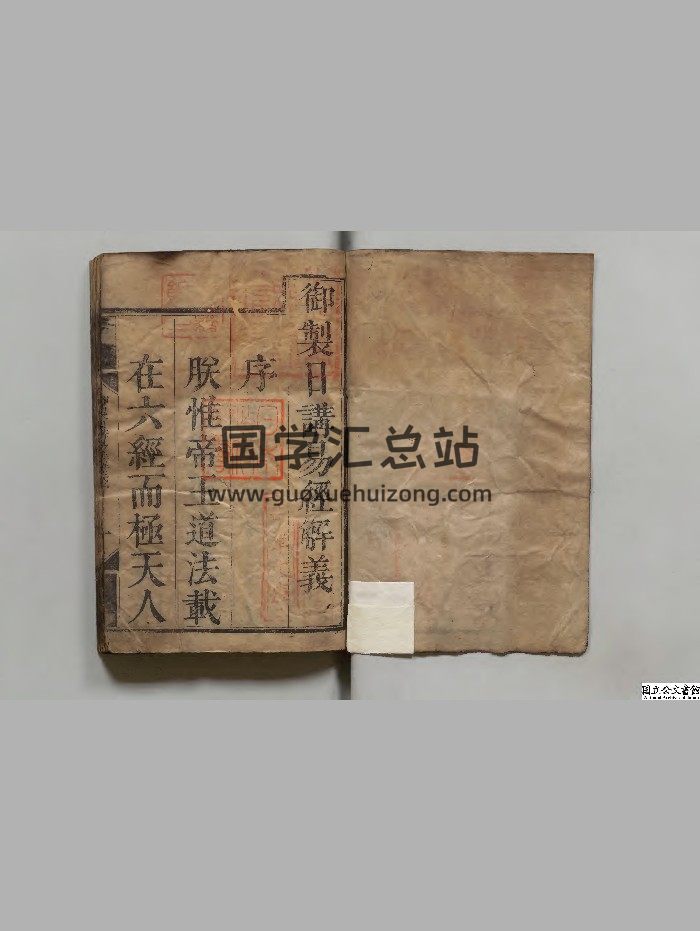 御製日講易經解義
序
朕惟帝王道法載
在六經而極天人
国学汇总站
www.guoxuehuizong.com
国立公文書館